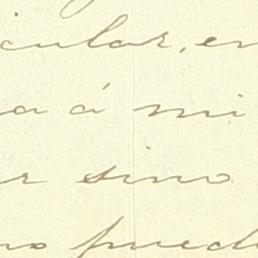 icular, en
a á mi
r sino
no puedo